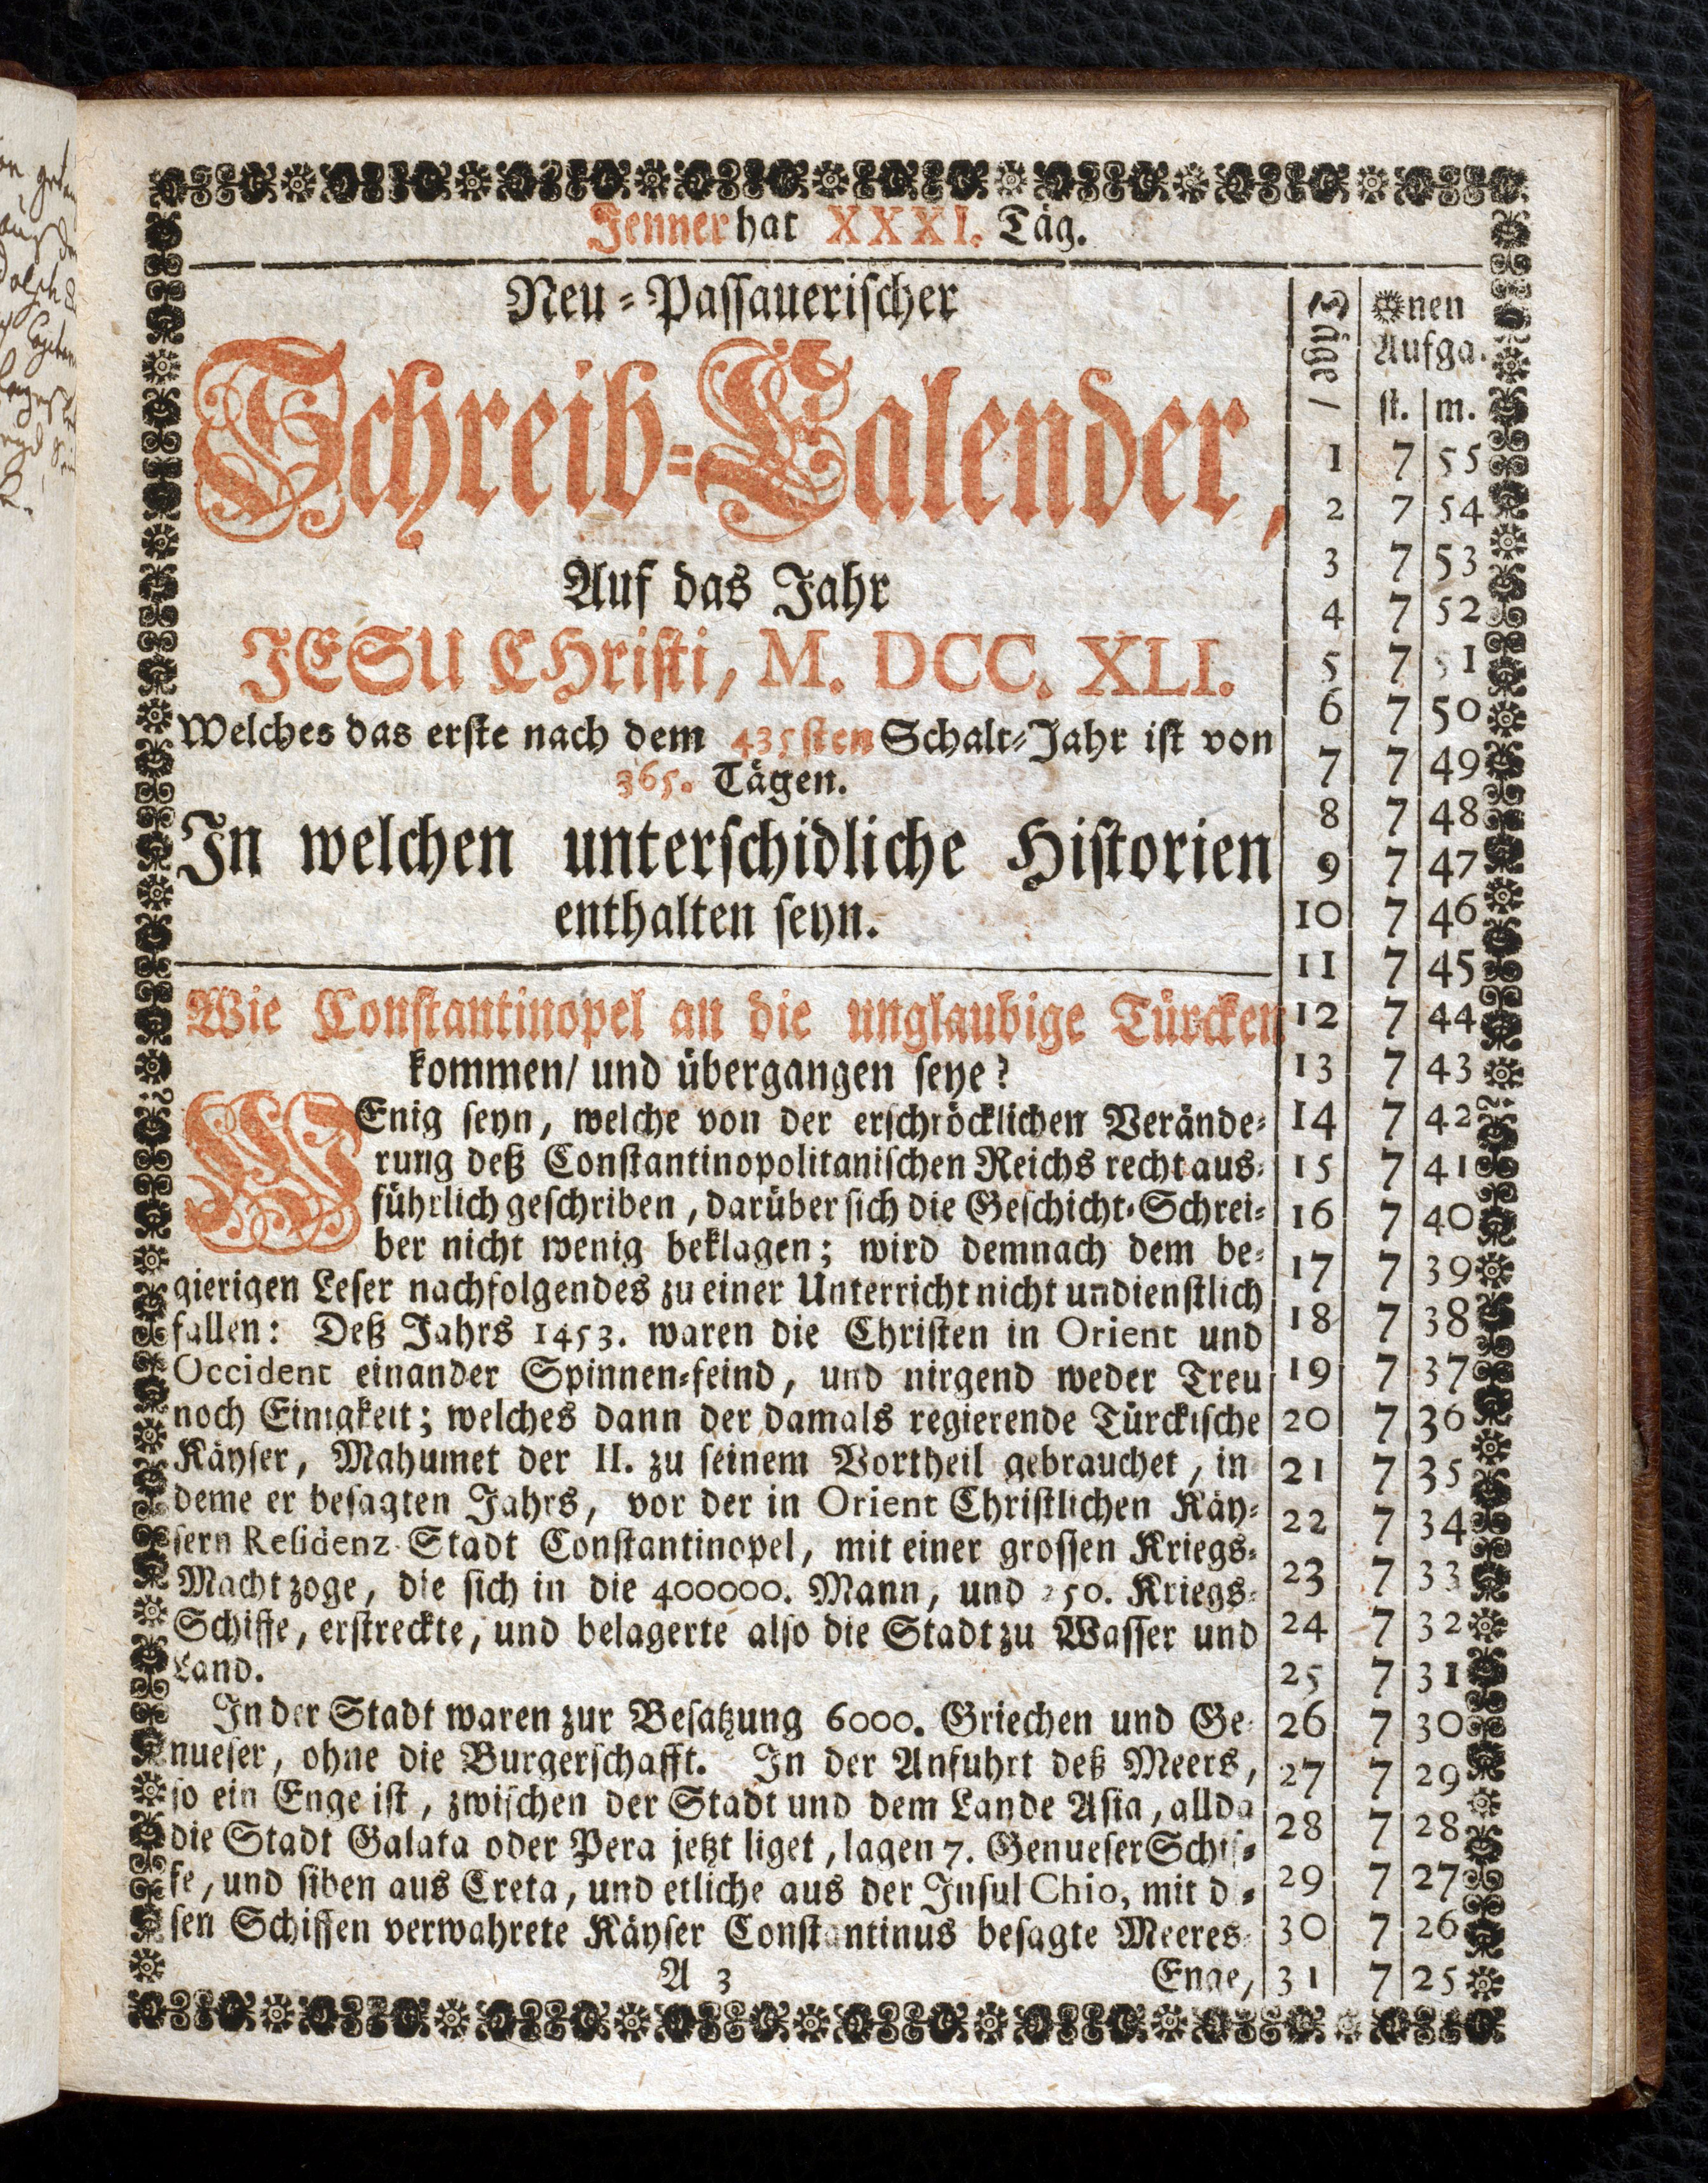 Jenner hat XXXI. Täg.
Neu-Passauerischer
Schreib-Calender,
Auf das Jahr
JESU CHristi, M. DCC. XLI.
Welches das erste nach dem 435sten Schalt-Jahr ist von
365. Tägen.
In welchen unterschidliche Historien
enthalten seyn.
Wie Constantinopel an die unglaubige Türcken
kommen/ und übergangen seye?
WEnig seyn, welche von der erschröcklichen Verände-
rung deß Constantinopolitanischen Reichs recht aus-
führlich geschriben, darüber sich die Geschicht-Schrei-
ber nicht wenig beklagen; wird demnach dem be-
gierigen Leser nachfolgendes zu einer Unterricht nicht undienstlich
fallen: Deß Jahrs 1453. waren die Christen in Orient und
Occident einander Spinnen-feind, und nirgend weder Treu
noch Einigkeit; welches dann der damals regierende Türckische
Käyser, Mahumet der II. zu seinem Vortheil gebrauchet, in
deme er besagten Jahrs, vor der in Orient Christlichen Käy-
sern Residenz-Stadt Constantinopel, mit einer grossen Kriegs-
Macht zoge, die sich in die 400000. Mann, und 250. Kriegs-
Schiffe, erstreckte, und belagerte also die Stadt zu Wasser und
Land.
In der Stadt waren zur Besatzung 6000. Griechen und Ge-
nueser, ohne die Burgerschafft. In der Anfuhrt deß Meers,
so ein Enge ist, zwischen der Stadt und dem Lande Asia, allda
die Stadt Galata oder Pera jetzt liget, lagen 7. Genueser Schif-
fe, und siben aus Creta, und etliche aus der Insul Chio, mit di-
sen Schiffen verwahrete Käyser Constantinus besagte Meeres-
A 3 Enge,
Täge/
nen
Aufga.
st. m.
1 7 55
2 7 54
3 7 53
4 7 52
5 7 51
6 7 50
7 7 49
8 7 48
9 7 47
10 7 46
11 7 45
12 7 44
13 7 43
14 7 42
15 7 41
16 7 40
17 7 39
18 7 38
19 7 37
20 7 36
21 7 35
22 7 34
23 7 33
24 7 32
25 7 31
26 7 30
27 7 29
28 7 28
29 7 27
30 7 26
31 7 25